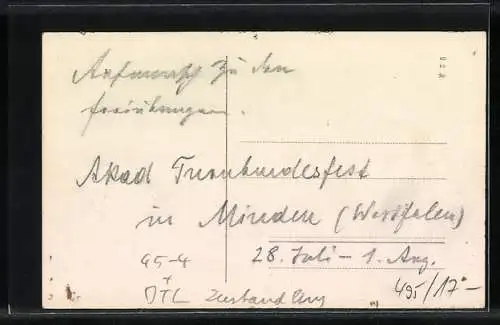 Aufmarsch zu den
Freiübungen.
Akad Turnbundesfest
in Minden (Westfalen)
28. Juli – 1. Aug.
95-4
495/17.-